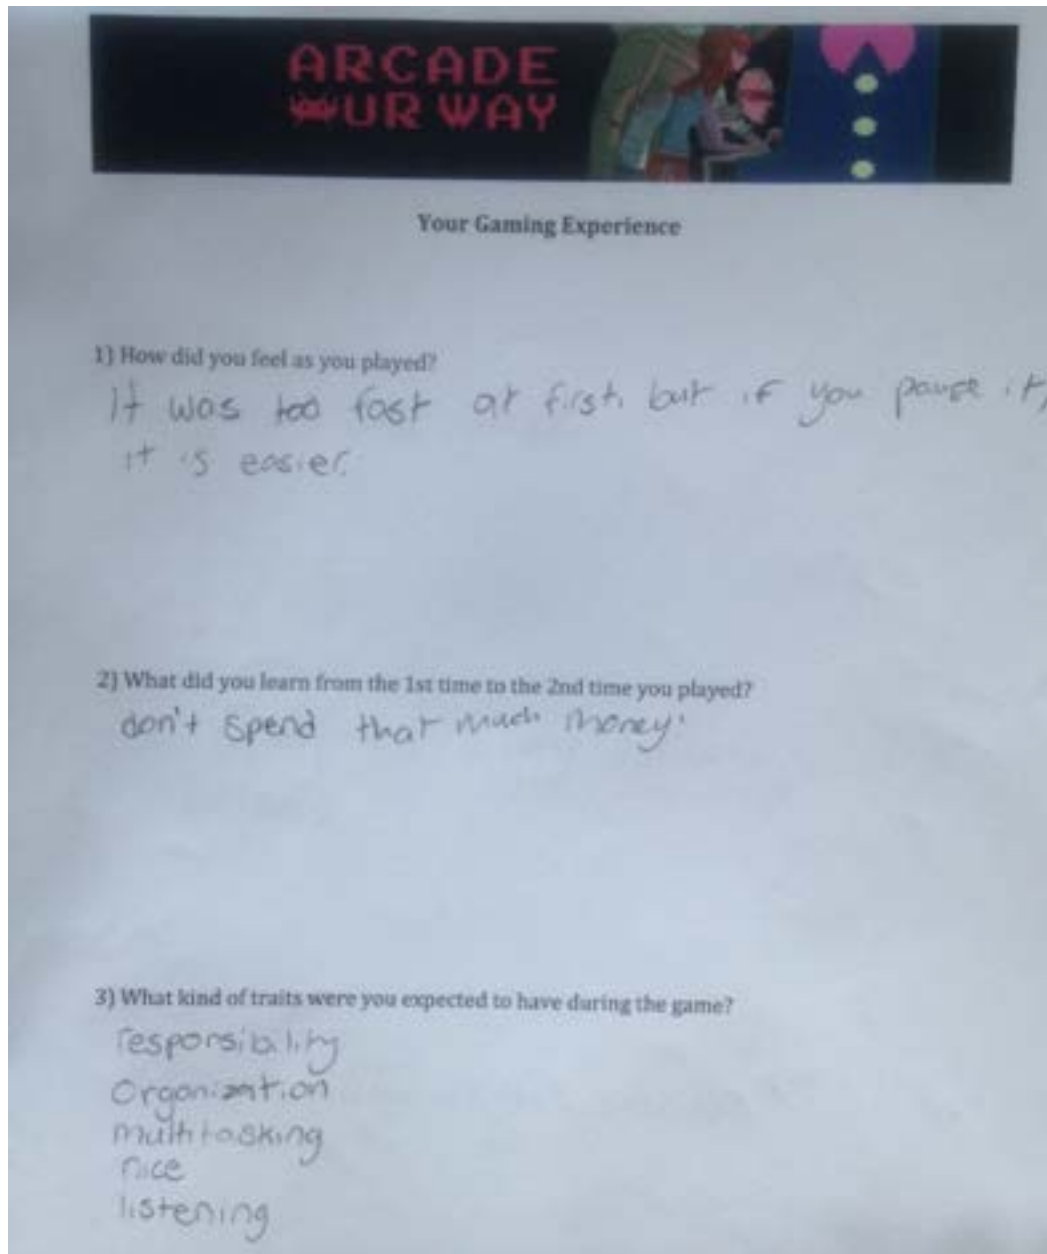 ARCADE
OUR WAY
Your Gaming Experience
1) How did you feel as you played?
It was too fast at first, but if you pause it,
it is easier.
2) What did you learn from the 1st time to the 2nd time you played?
don't spend that much money.
3) What kind of traits were you expected to have during the game?
responsibility
Organization
multitasking
nice
listening